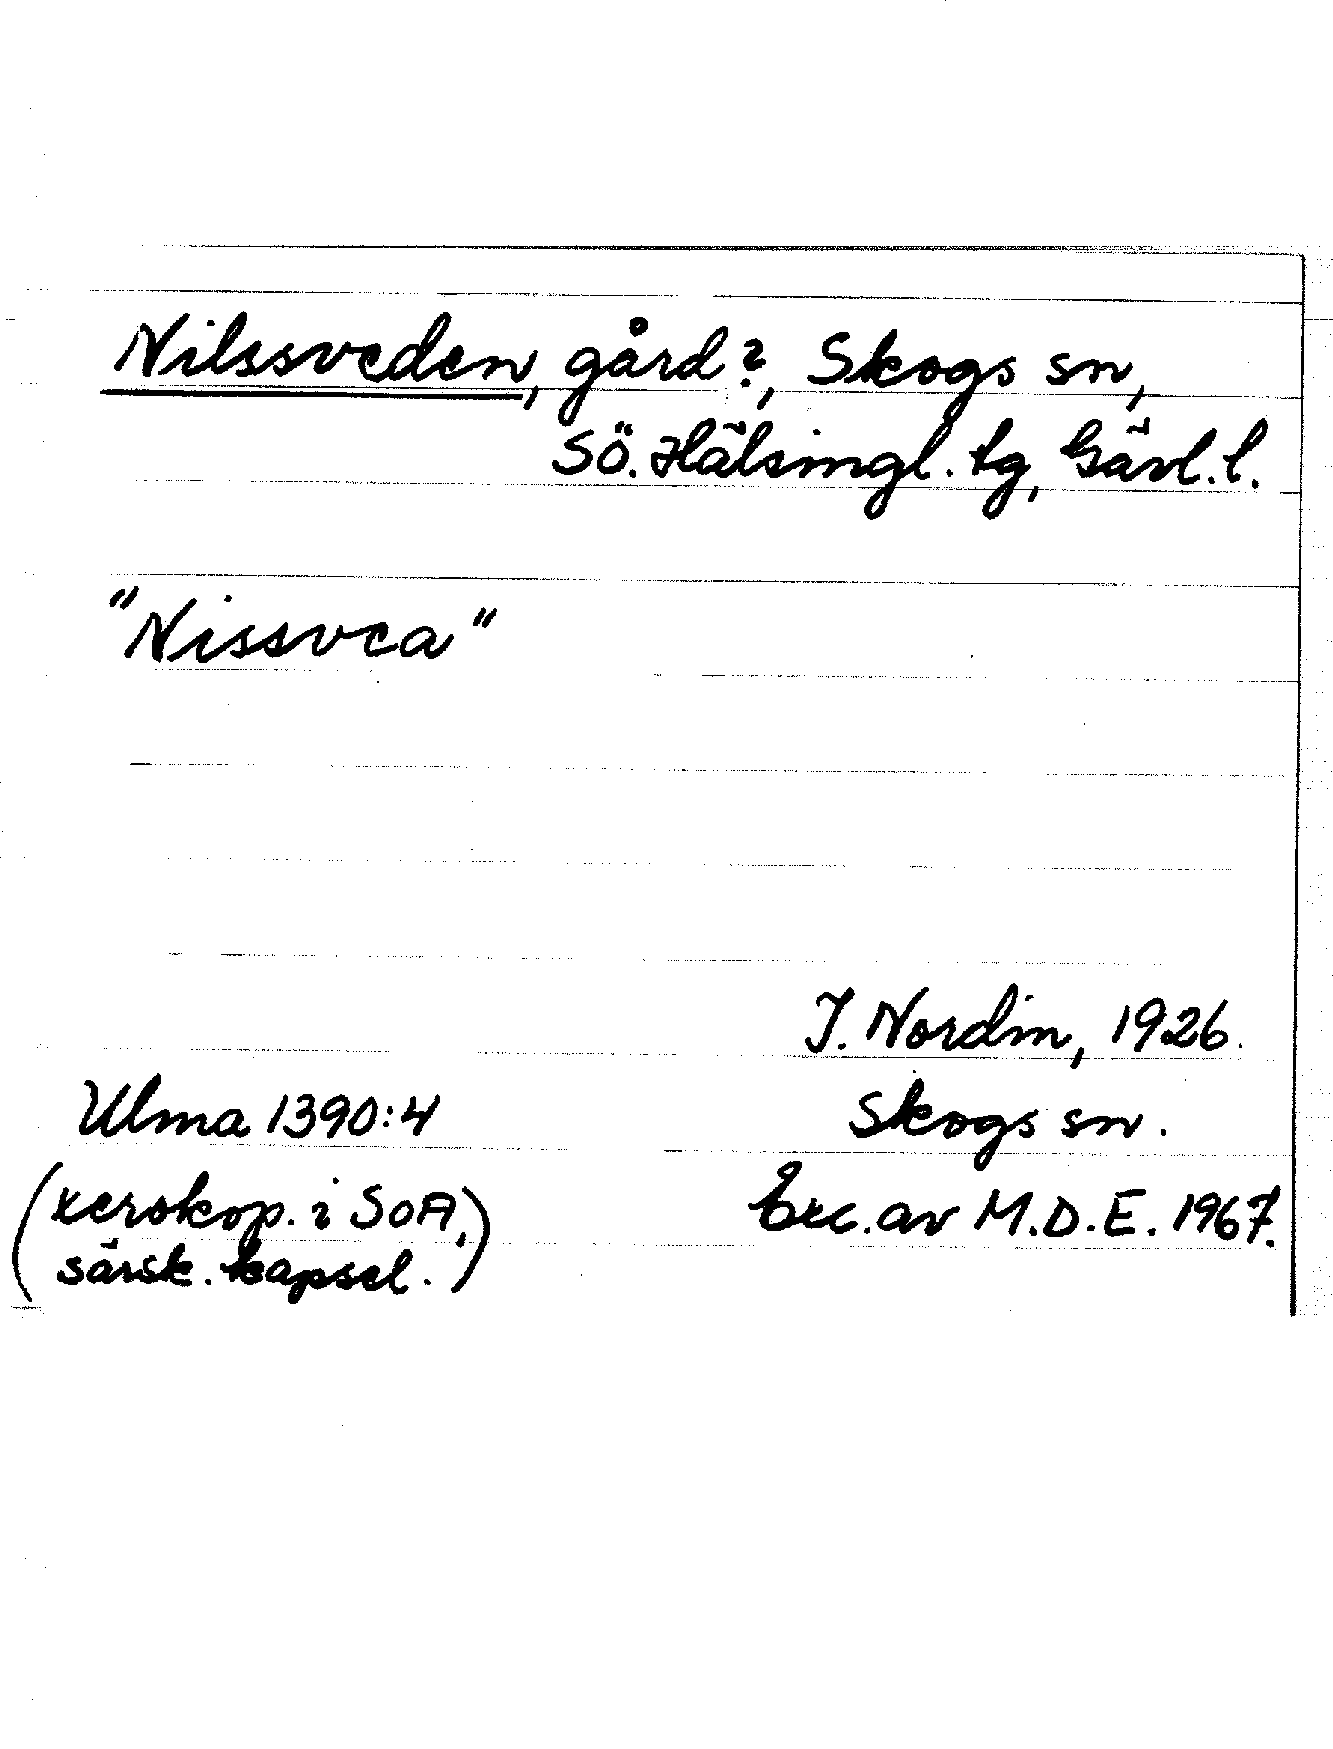 Nilssveden, gård?, Skogs sn,
Sö. Hälsingl. tg, Gävl. l.
"Nissvea"
J. Nordin, 1926.
Ulma 1390:4
Skogs sn.
(xerokop. i SOA,
särsk. kapsel.)
Exc. av M.D.E. 1967.